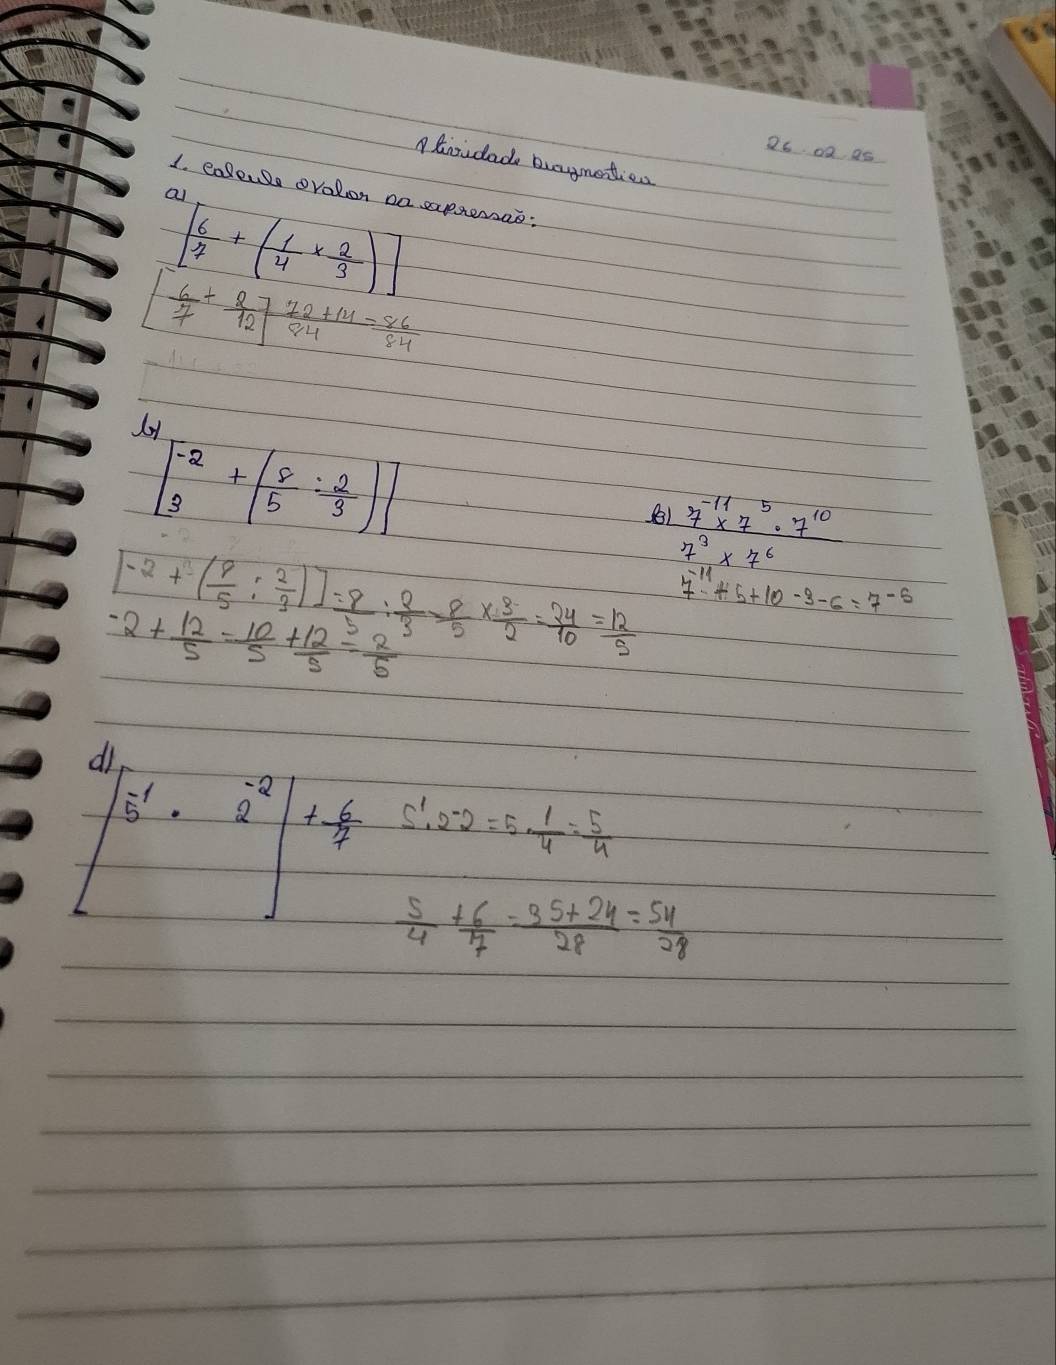 Atividade Diagnostica 26.02.25
1. Calcule o valor da expressão:
a)
[6/7 + (1/4 × 2/3)]
[6/7 + 2/12] 72+14/84 = 86/84
b)
[3^-2 + (8/5 : 2/3)]
[-2 + (8/5 : 2/3)] = 8/5 : 2/3 = 8/5 × 3/2 = 24/10 = 12/5
-2 + 12/5 = 10/5 + 12/5 = 2/5
7^-11 × 7^5 · 7^10
7^3 × 7^6
7^-11 + 5 + 10 - 3 - 6 = 7^-5
d)
[5^-1 · 2^-2] + 6/7 5^1 · 2^-2 = 5 · 1/4 = 5/4
5/4 + 6/7 = 35+24/28 = 54/28